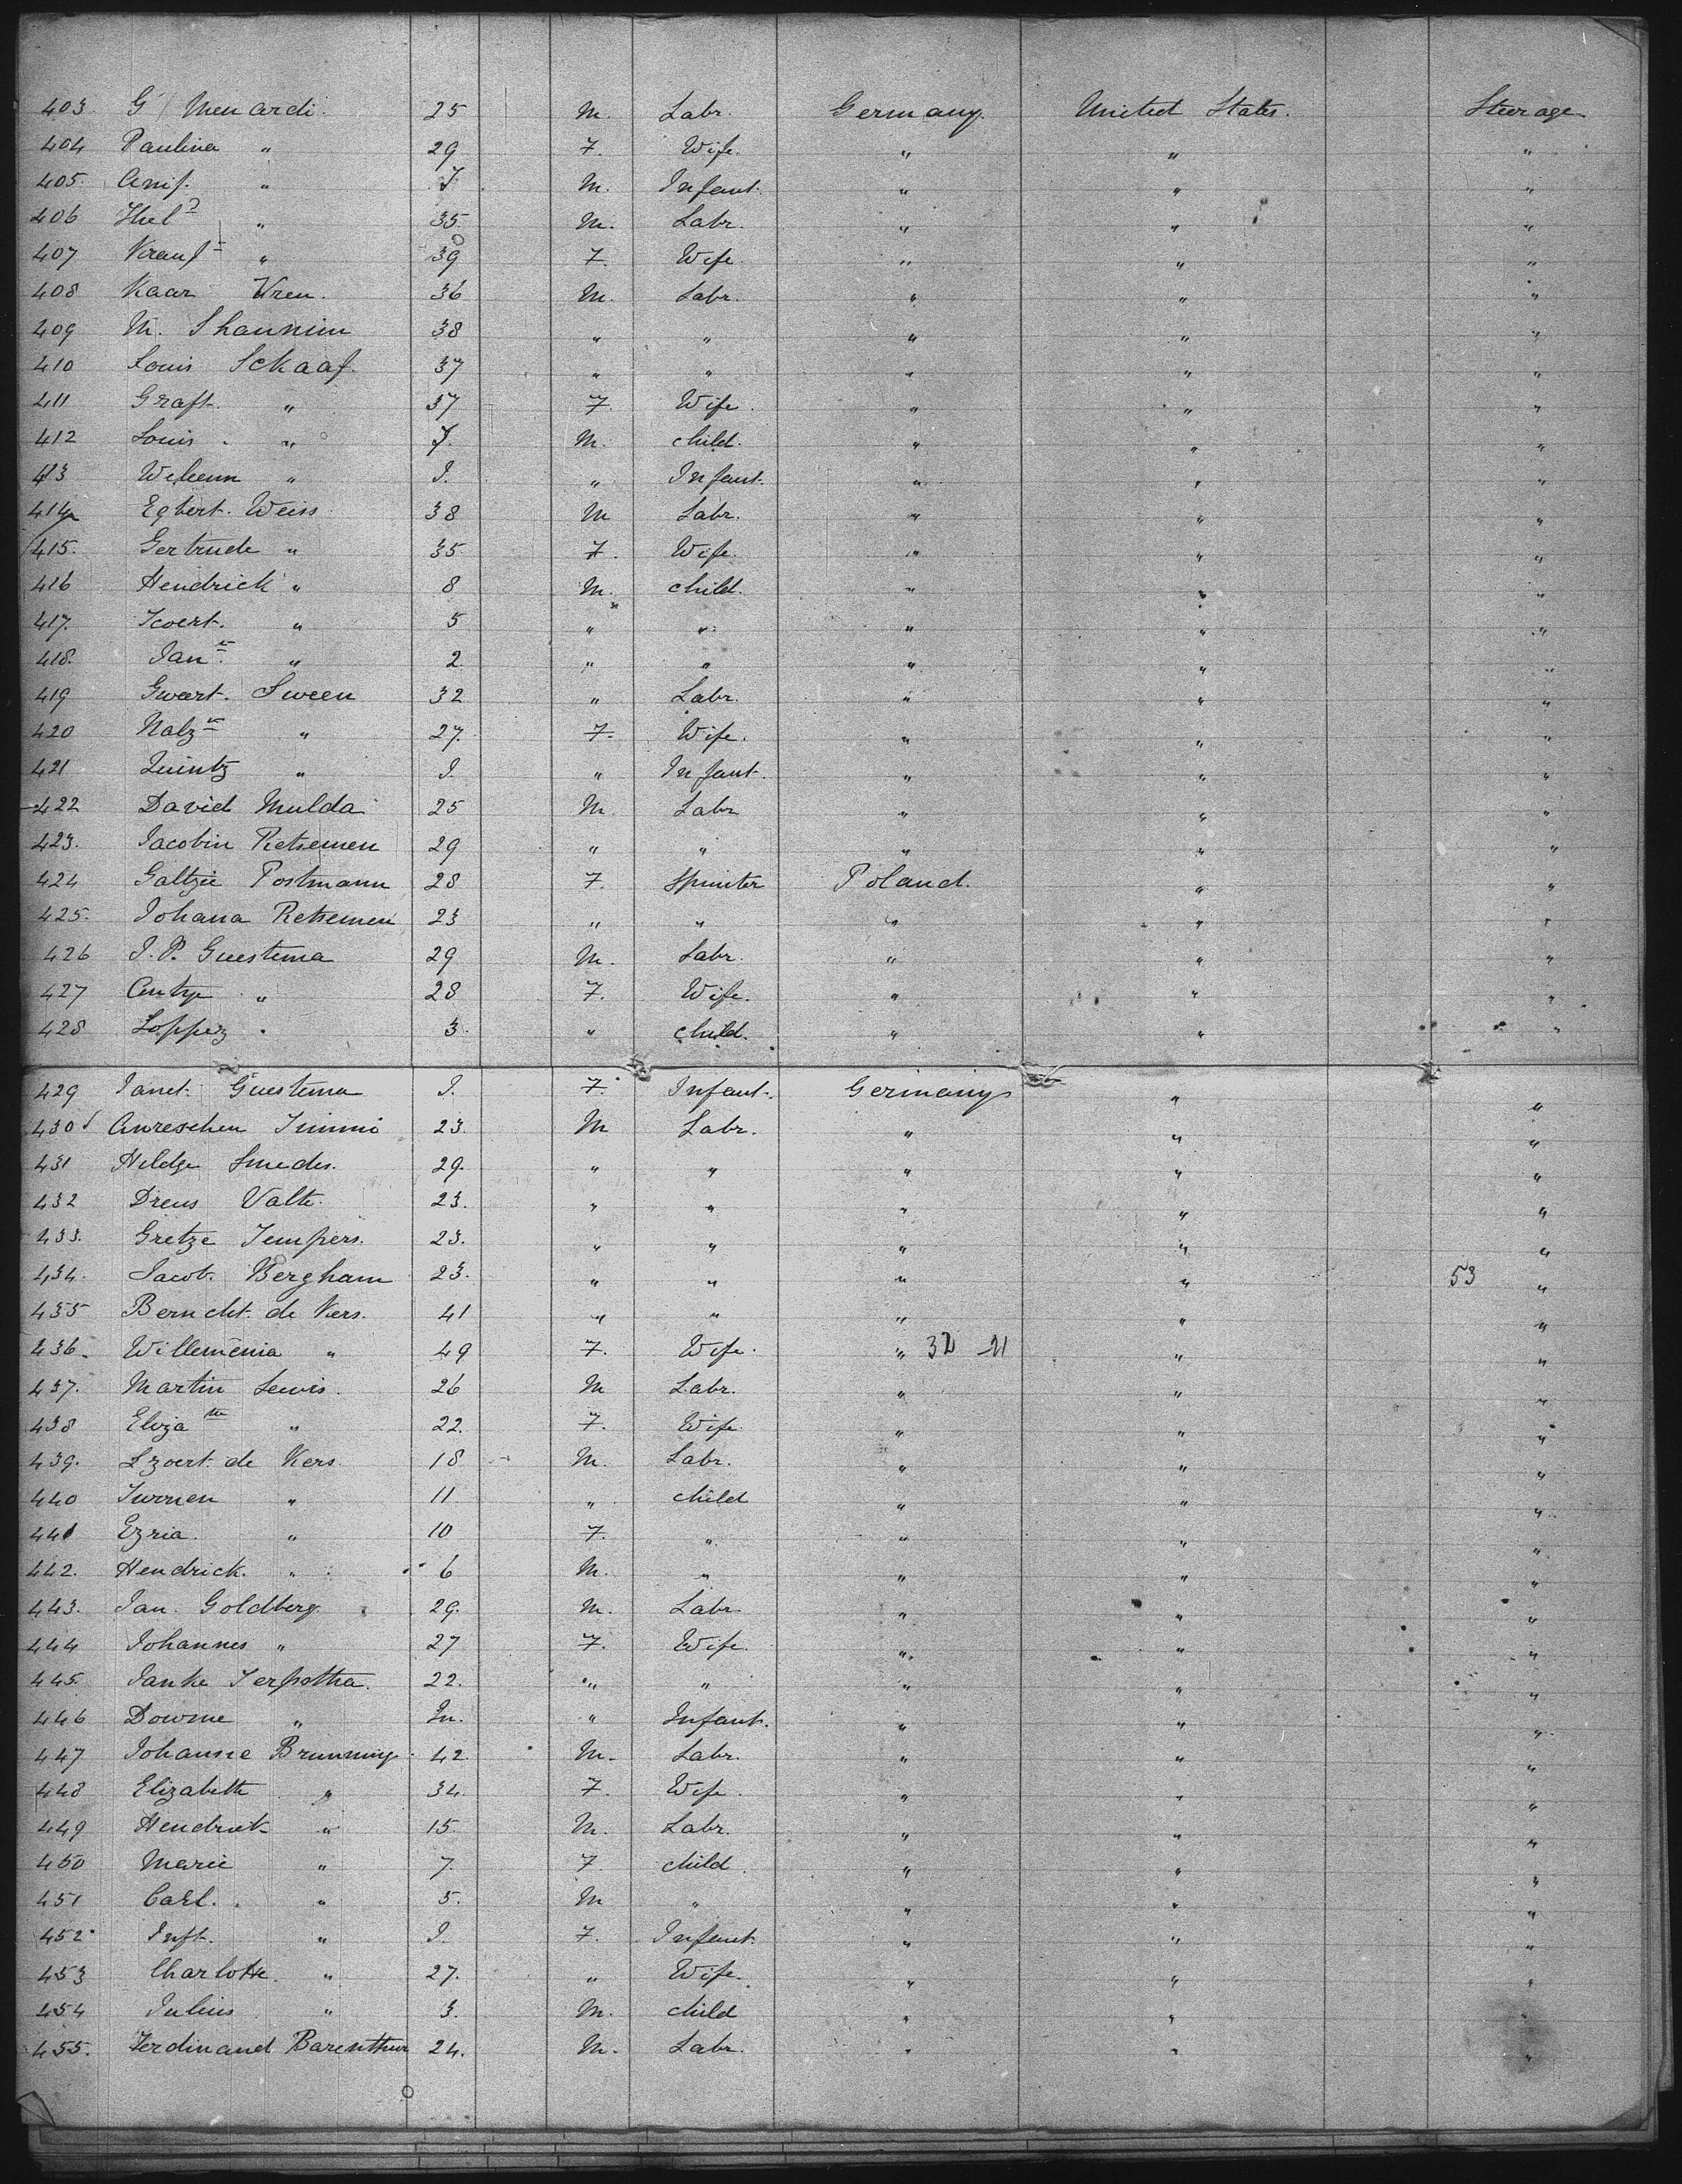 403 G Menardi 25 M. Labr. Germany. United States. Steerage
404 Paulina " 29 F. Wife. " " "
405. " I M. Infant. " " "
406 " 35. M. Labr. " " "
407 " 39 F. Wife " " "
408 Kaar Kren. 36 M. Labr. " " "
409 M. Shannim 38 " " " " "
410 Louis Schaaf. 37 " " " " "
411 Graft. " 37 F. Wife. " " "
412 Louis. " 7. M. child. " " "
413 " I. " Infant. " " "
414 Egbert. Weiss 38 M Labr. " " "
415. Gertrude " 35 F. Wife. " " "
416 Hendrick " 8 M. child. " " "
417. " 5 " " " " "
418. " 2. " " " " "
419 Sween 32 " Labr. " " "
420 " 27. F. Wife. " " "
421 " I. " Infant. " " "
422 David Mulda 25 M. Labr " " "
423. Jacobin Retsemen 29 " " " " "
424 Galtzie Postmann 28 F. Spinster Poland. " "
425. Johana Retsemen 23 " " " " "
426 J. P. Guestema 29 M. Labr. " " "
427 Antje " 28 F. Wife. " " "
428 " 3. " child. " " "
429 Janet. Guestema I. F. Infant. Germany " "
430 Anreschen 23. M Labr. " " "
431 Smedes. 29. " " " " "
432 Dreus Valte. 23. " " " " "
433. Gretze Jempers. 23. " " " " "
434. Jacob. Bergham 23. " " " " 53 "
435 de Vers. 41 " " " " "
436. Willemenia " 49 F. Wife. " 32 21 " "
437. Martin Lewis. 26 M Labr. " " "
438 Elizath " 22. F. Wife " " "
439. de Kers 18 M. Labr. " " "
440 Jurrien " 11 " child " " "
441 Ezria. " 10 F. " " " "
442. Hendrick. " 6 M. " " " "
443. Jan. Goldberg. 29. M. Labr. " " "
444 Johannes " 27 F. Wife. " " "
445. Janke Jerpstha. 22. " " " " "
446 Dowme " In. " Infant. " " "
447 Johanne Brunning. 42. M. Labr. " " "
448 Elizabeth " 34. F. Wife. " " "
449 Hendrick " 15. M. Labr. " " "
450 Marie " 7. F child. " " "
451 Carl. " 5. M " " " "
452 Inft. " I. F. Infant. " " "
453 Charlotte. " 27. " Wife. " " "
454 Julius " 3. M. child " " "
455. Ferdinand Barenthur 24. M. Labr. " " "